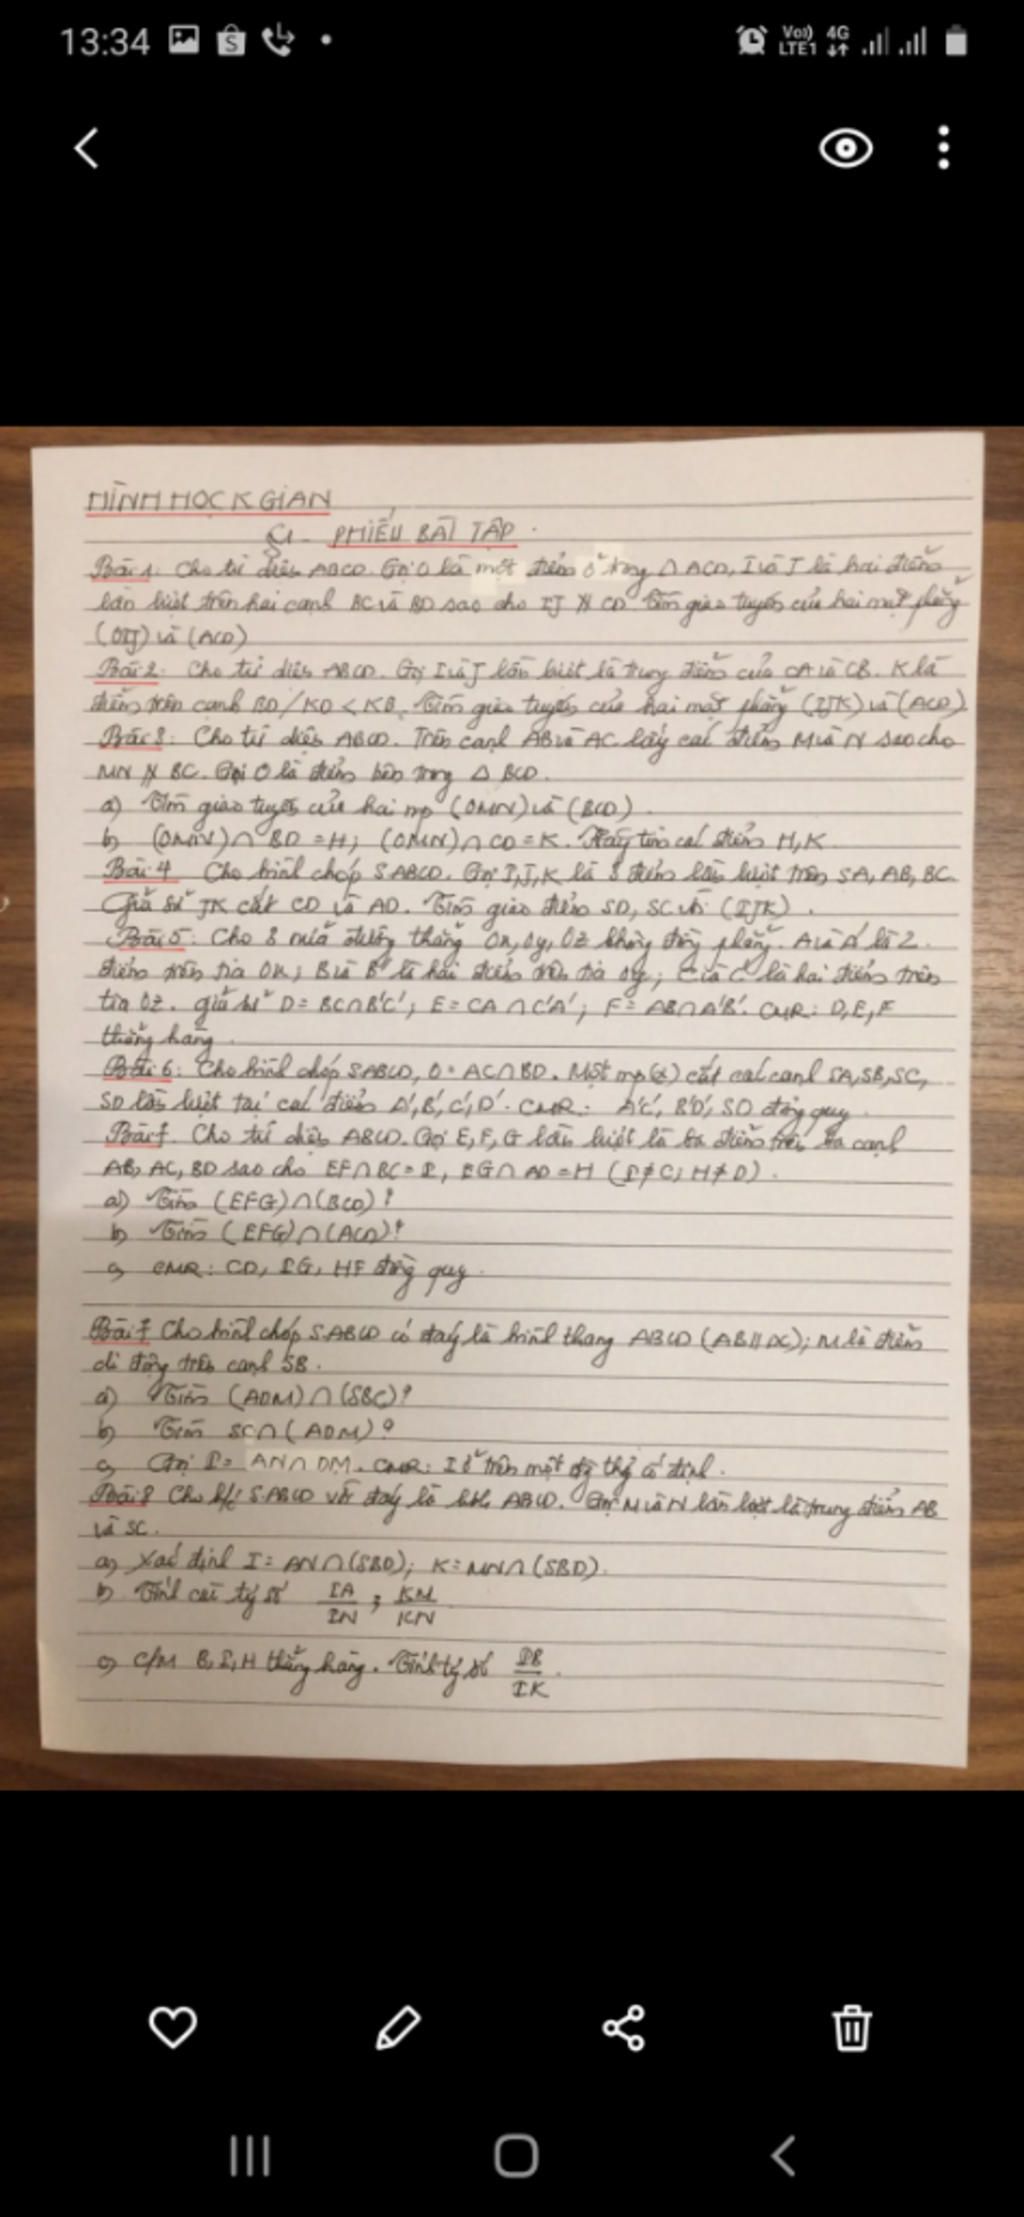 13:34
Vo)) LTE1 4G
HÌNH HỌC K GIAN
§1 - PHIẾU BÀI TẬP.
Bài 1: Cho tứ diện ABCD. Gọi O là một điểm ở trong Δ ACD, I và J là hai điểm
lần lượt trên hai cạnh BC và BD sao cho IJ ∦ CD. Tìm giao tuyến của hai mặt phẳng
(OIJ) và (ACD)
Bài 2: Cho tứ diện ABCD. Gọi I và J lần lượt là trung điểm của CA và CB. K là
điểm trên cạnh BD / KD < KB. Tìm giao tuyến của hai mặt phẳng (IJK) và (ACD)
Bài 3: Cho tứ diện ABCD. Trên cạnh AB và AC lấy các điểm M và N sao cho
MN ∦ BC. Gọi O là điểm bên trong Δ BCD.
a) Tìm giao tuyến của hai mp (OMN) và (BCD).
b) (OMN) ∩ BD = H; (OMN) ∩ CD = K. Hãy tìm các điểm H, K.
Bài 4 Cho hình chóp S.ABCD. Gọi I, J, K là 3 điểm lần lượt trên SA, AB, BC.
Giả sử JK cắt CD và AD. Tìm giao điểm SD, SC với (IJK).
Bài 5: Cho 3 nửa đường thẳng Ox, Oy, Oz không đồng phẳng. A và A' là 2
điểm trên tia Ox; B và B' là hai điểm trên tia Oy; C và C' là hai điểm trên
tia Oz. Giả sử D = BC ∩ B'C'; E = CA ∩ C'A'; F = AB ∩ A'B'. CMR: D, E, F
thẳng hàng.
Bài 6: Cho hình chóp S.ABCD, O = AC ∩ BD. Một mp (α) cắt các cạnh SA, SB, SC,
SD lần lượt tại các điểm A', B', C', D'. CMR: A'C', B'D', SO đồng quy.
Bài 7. Cho tứ diện ABCD. Gọi E, F, G lần lượt là ba điểm trên ba cạnh
AB, AC, BD sao cho EF ∩ BC = I, EG ∩ AD = H (I ≠ C; H ≠ D).
a) Tìm (EFG) ∩ (BCD)?
b) Tìm (EFG) ∩ (ACD)?
c) CMR: CD, IG, HF đồng quy.
Bài 7 Cho hình chóp S.ABCD có đáy là hình thang ABCD (AB // DC); M là điểm
di động trên cạnh SB.
a) Tìm (ADM) ∩ (SBC)?
b) Tìm SC ∩ (ADM)?
c) Gọi I = AN ∩ DM. CMR: I ở trên một đg thg cố định.
Bài 8 Cho h/c S.ABCD với đáy là hbh ABCD. Gọi M và N lần lượt là trung điểm AB
và SC.
a) Xác định I = AN ∩ (SBD); K = MN ∩ (SBD).
b) Tính các tỷ số IA/IN ; KM/KN
c) C/M B, I, H thẳng hàng. Tính tỷ số IB/IK.